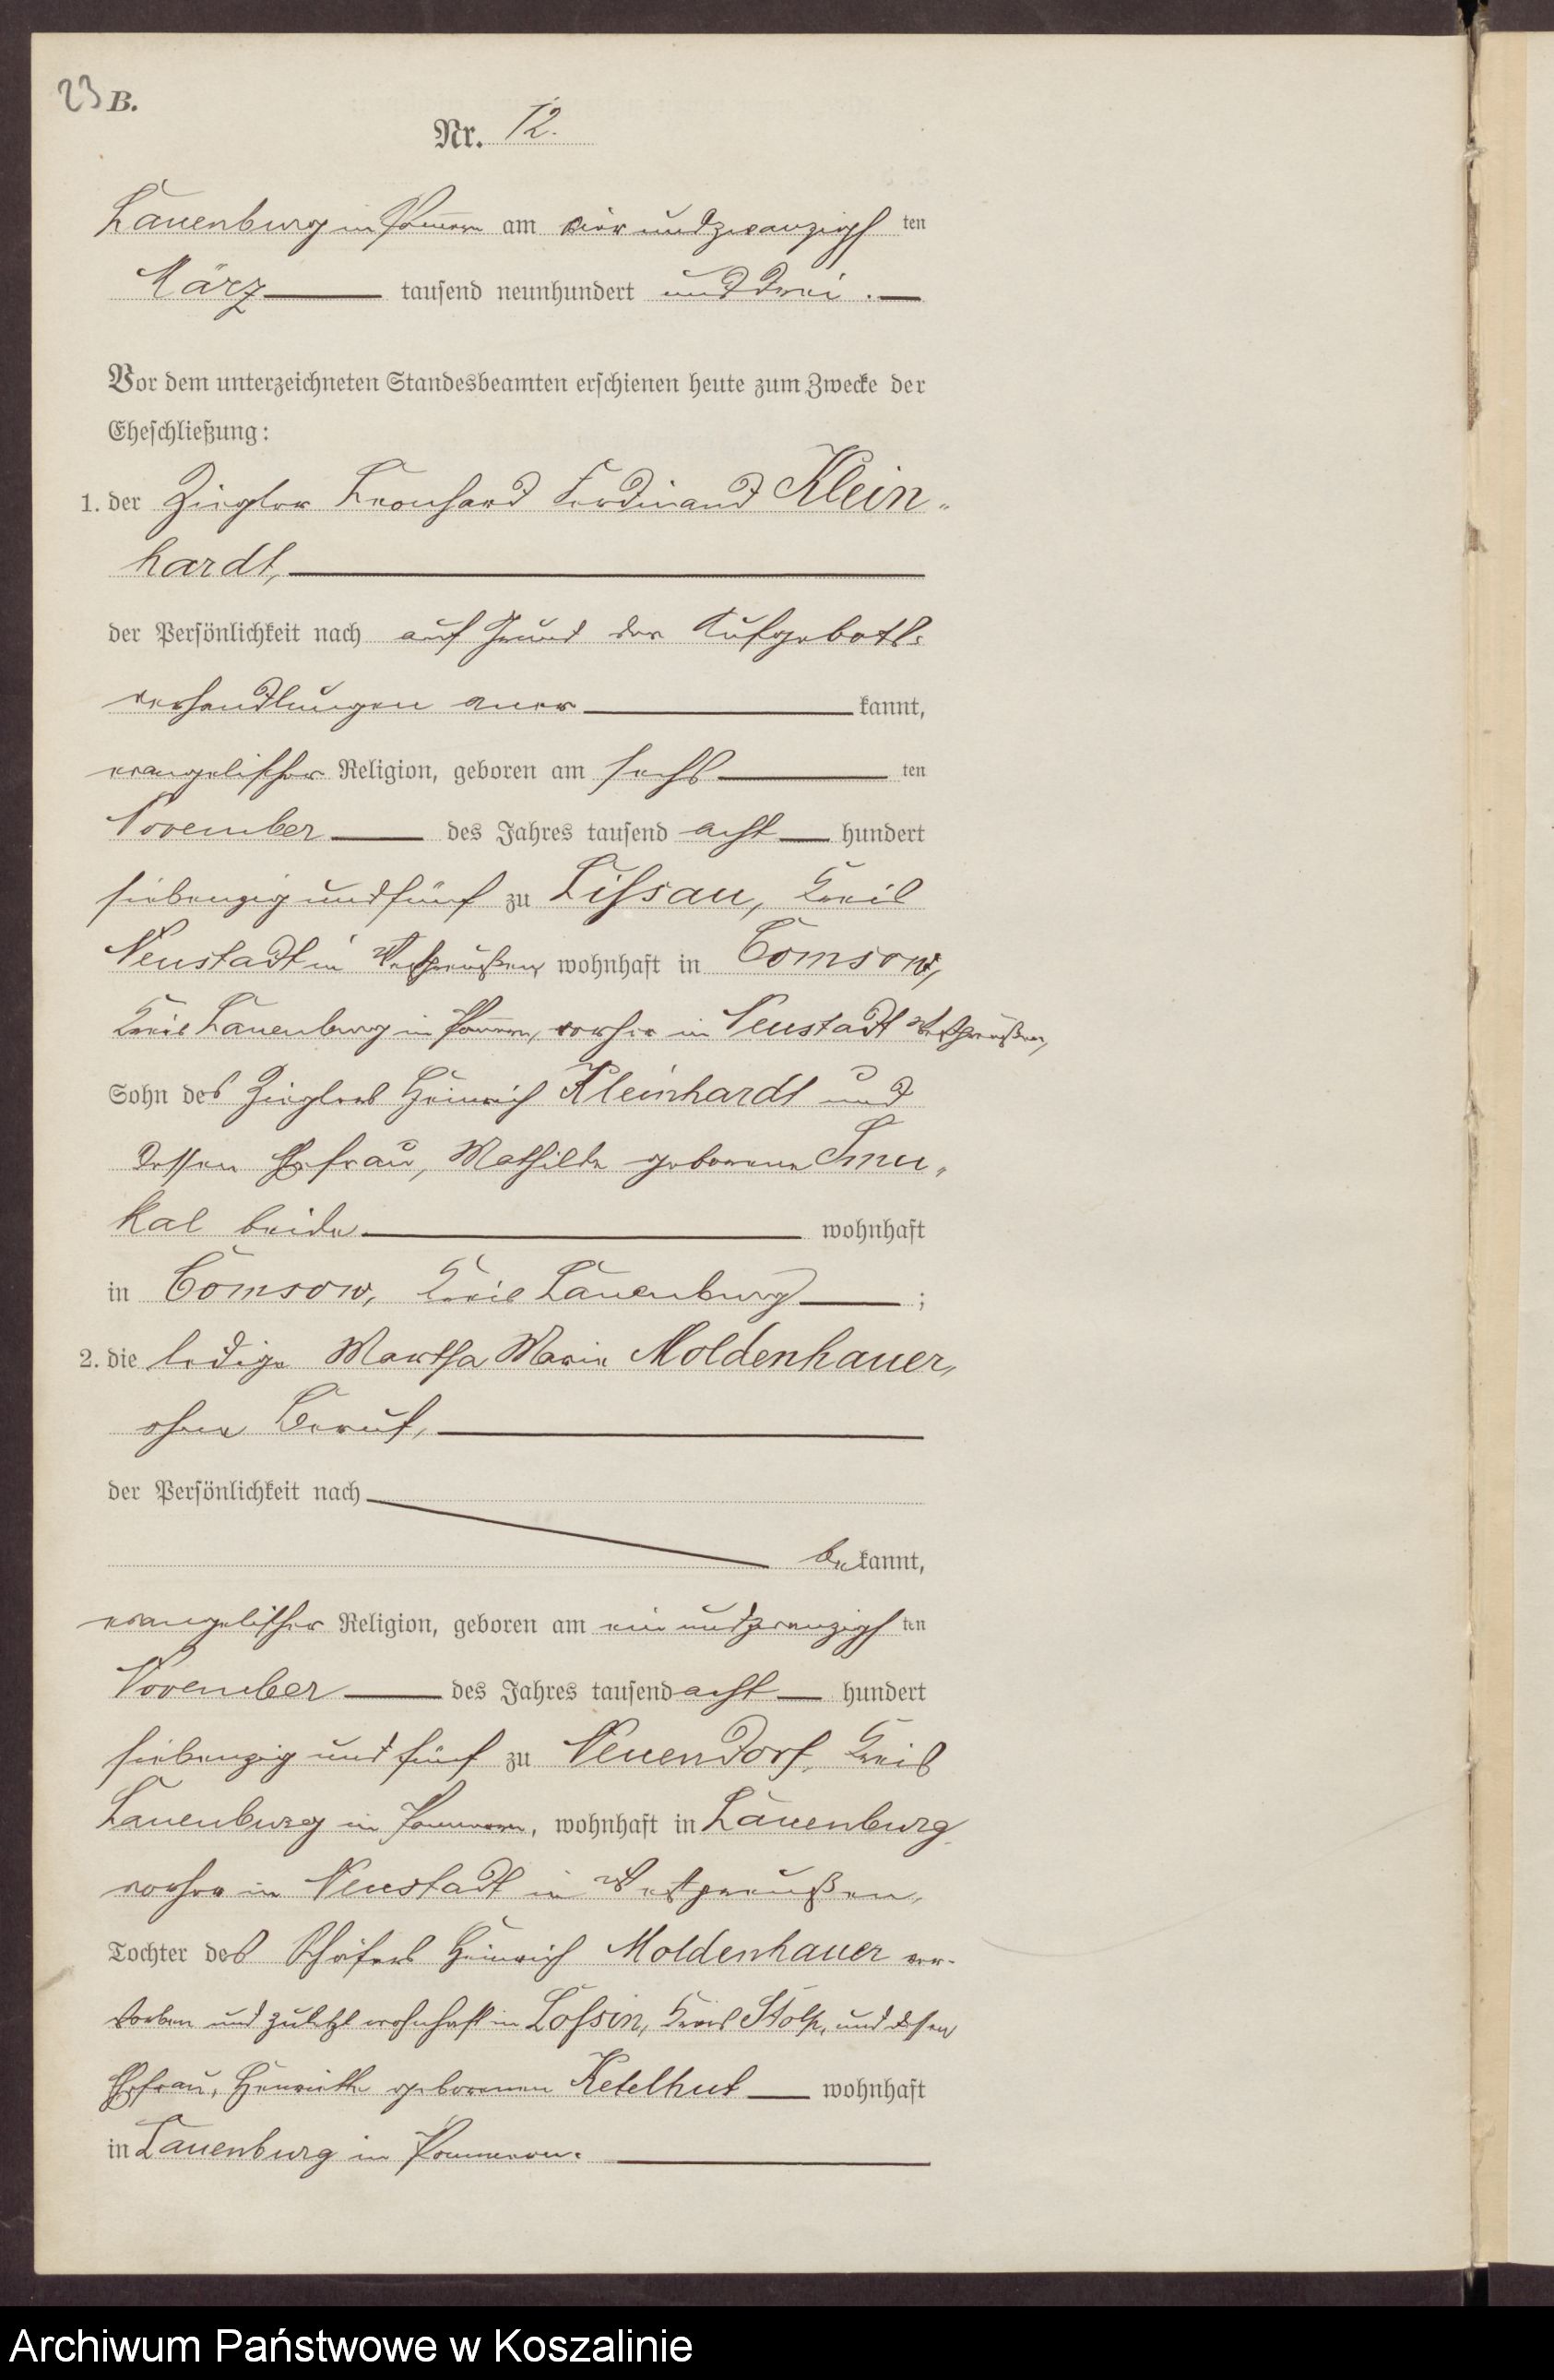 23 B.
Nr. 12.
Lauenburg in Pommern am vierundzwanzigsten
März tausend neunhundert und drei.
Vor dem unterzeichneten Standesbeamten erschienen heute zum Zwecke der
Eheschließung:
1. der Ziegler Leonhard Ferdinand Klein-
hardt,
der Persönlichkeit nach auf Grund der Aufgebots-
verhandlungen anerkannt,
evangelischer Religion, geboren am sechsten
November des Jahres tausend acht hundert
siebenzig und fünf zu Lissau, Kreis
Neustadt in Westpreußen, wohnhaft in Comsow,
Kreis Lauenburg in Pommern, vorher in Neustadt Westpreußen,
Sohn des Zieglers Heinrich Kleinhardt und
dessen Ehefrau, Mathilde geborene Smu-
kal beide wohnhaft
in Comsow, Kreis Lauenburg;
2. die ledige Martha Marie Moldenhauer,
ohne Beruf,
der Persönlichkeit nach
bekannt,
evangelischer Religion, geboren am einundzwanzigsten
November des Jahres tausend acht hundert
siebenzig und fünf zu Neuendorf, Kreis
Lauenburg in Pommern, wohnhaft in Lauenburg
vorher in Neustadt in Westpreußen,
Tochter des Schäfers Heinrich Moldenhauer ver-
storben und zuletzt wohnhaft in Lossin, Kreis Stolp, und dessen
Ehefrau, Henriette geborenen Ketelhut wohnhaft
in Lauenburg in Pommern.
Archiwum Państwowe w Koszalinie